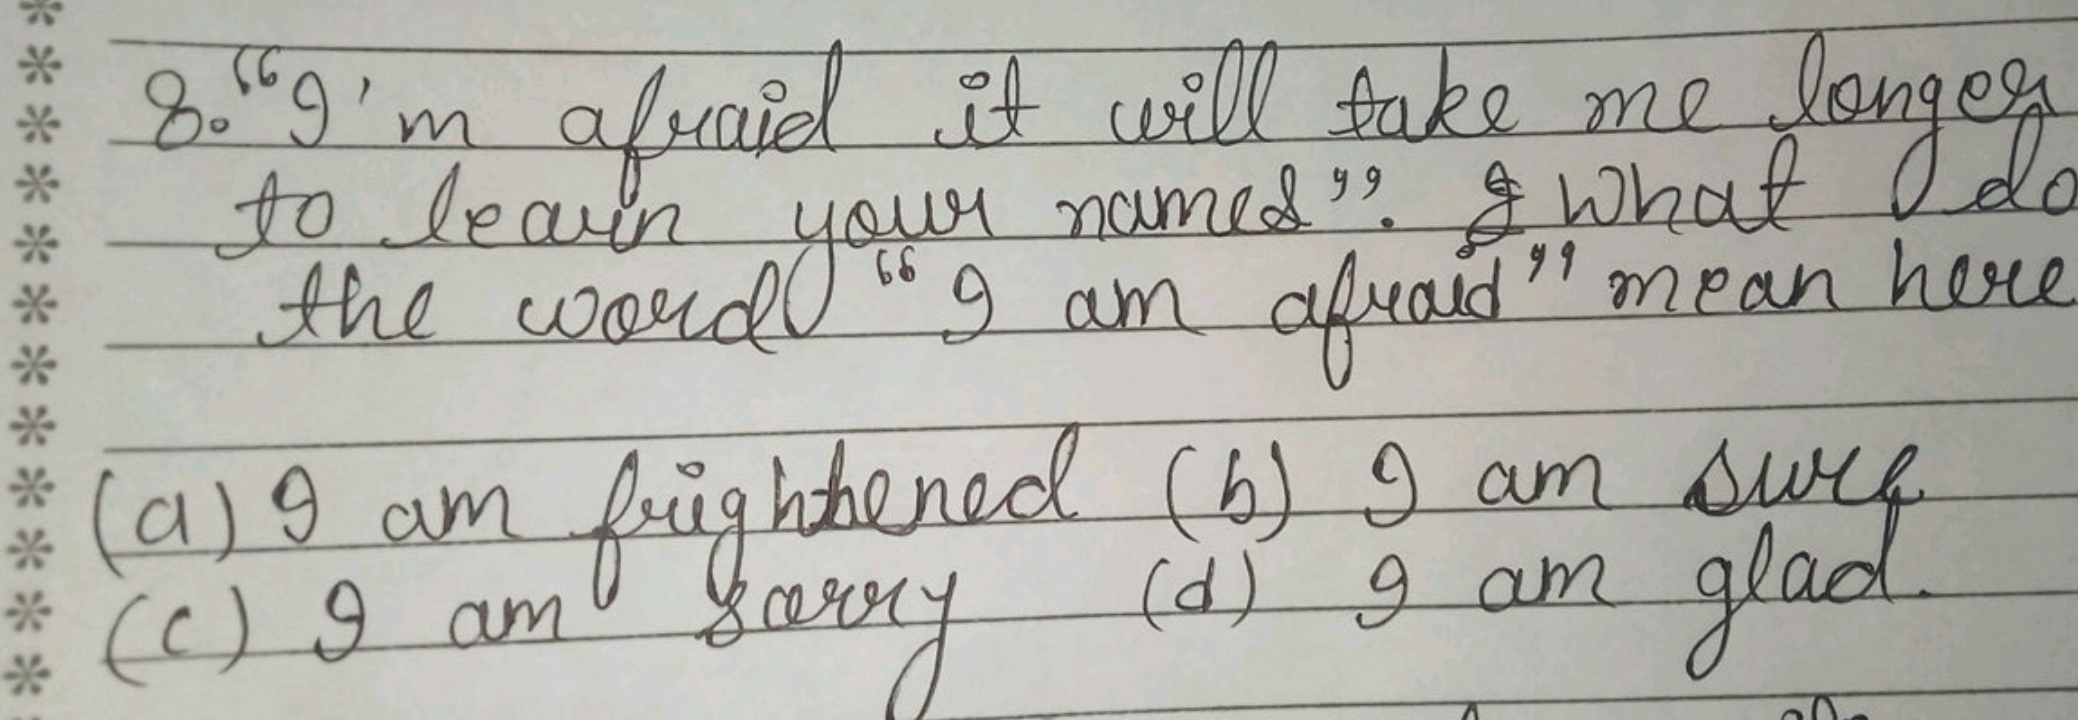 8. "I'm afraid it will take me longer
to learn your names". What do
the word "I am afraid" mean here
(a) I am frightened (b) I am sure
(c) I am sorry (d) I am glad.